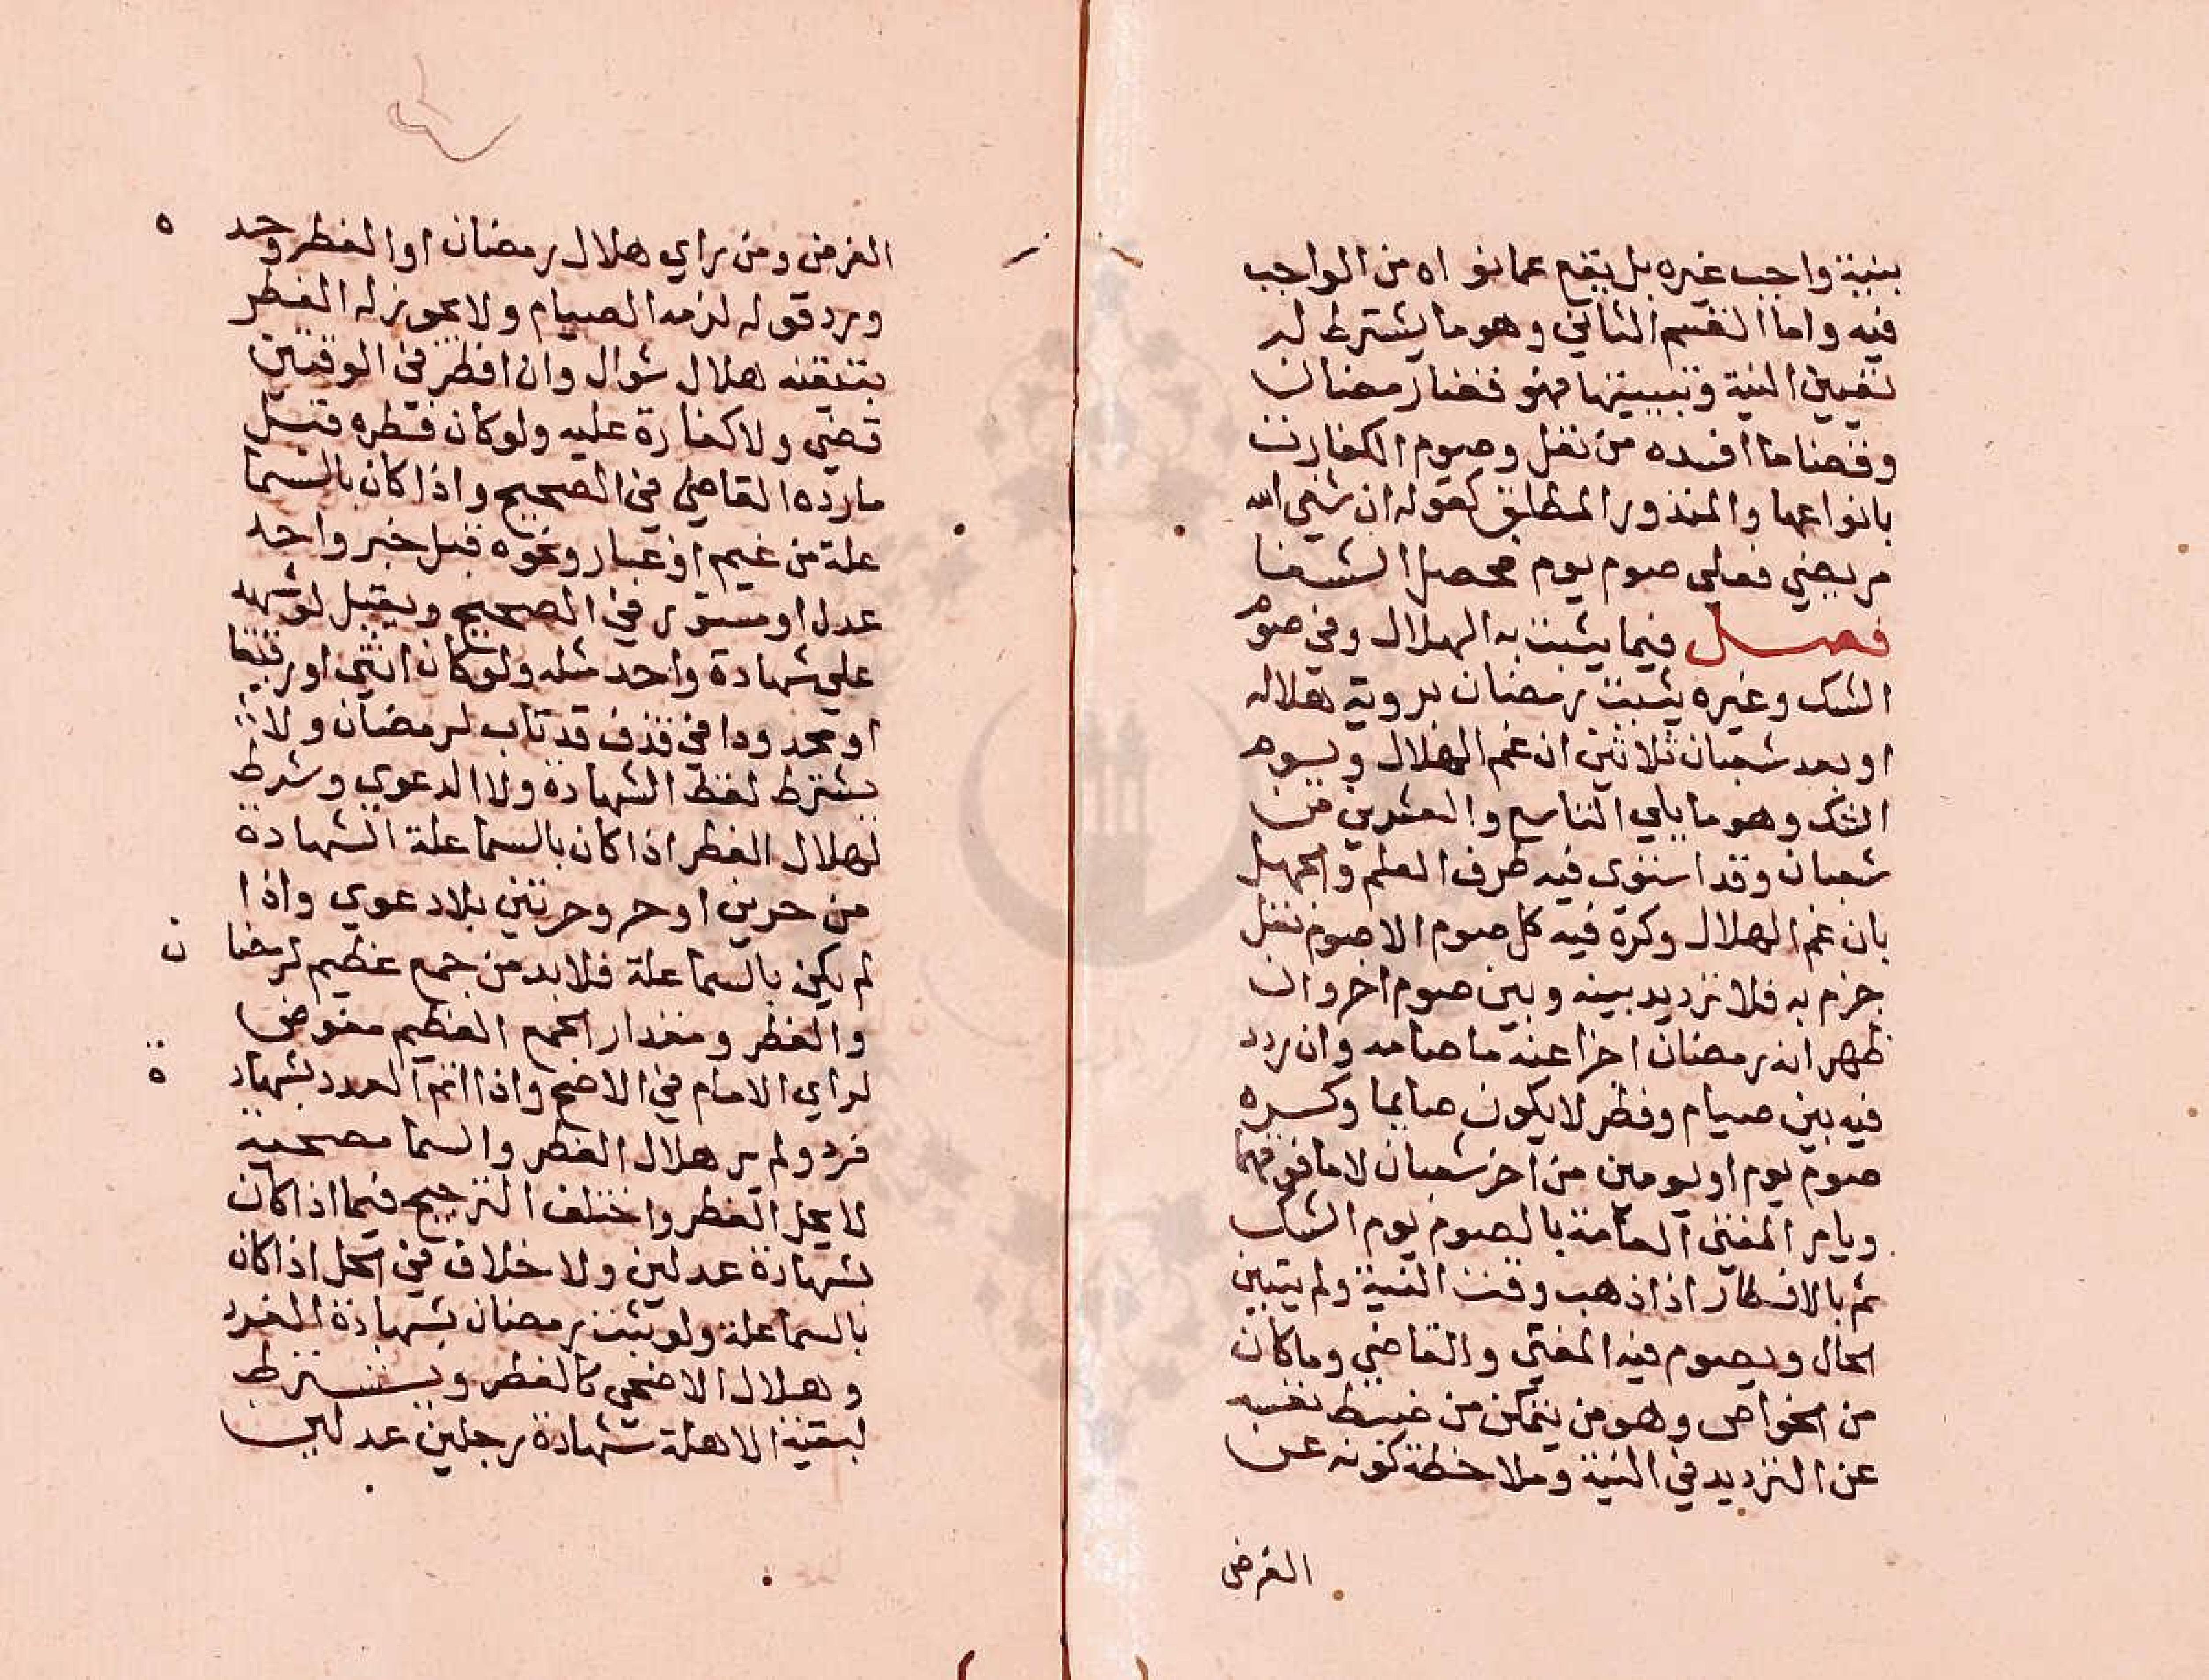 بنية واجب غيره بل يقع عما نواه من الواجب
فيه واما القسم الثاني وهو ما يشترط له
تعيين النية وتبييتها فهو قضا رمضان
وقضا ما افسده من نفل وصوم الكفارت
بانواعها والمنذور المطلق كقوله ان شفي الله
مريضي فعلى صوم يوم فحصل الشفا
فصل فيما يثبت به الهلال وفي صوم
الشك وغيره يثبت رمضان بروية هلاله
او بعد شعبان ثلاثين ان غم الهلال ويوم
الشك وهو ما يلي التاسع والعشرين من
شعبان وقد استوى فيه طرف العلم والجهل
بان غم الهلال وكره فيه كل صوم الا صوم نفل
جزم به فلا ترديد بينه وبين صوم اخر وان
ظهر انه رمضان اجزا عنه ما صامه وان ردد
فيه بين صيام وفطر لا يكون صايما وكره
صوم يوم او يومين من اخر شعبان لا ما فوقهما
ويامر المفتي العامة بالصوم يوم الشك
ثم بالافطار اذا ذهب وقت النية ولم يتبين
الحال ويصوم فيه المفتي والقاضي وما كان
من الخواص وهو من يتمكن من ضبط نفسه
عن الترديد في النية وملاحظة كونه عن
الفرض
الفرض ومن راي هلال رمضان او الفطر وحد ه
ورد قوله لزمه الصيام ولا يجوز له الفطر
بتيقنه هلال شوال وان افطر في الوقتين
قضي ولا كفارة عليه ولو كان فطره قبل
ما رده القاضي في الصحيح واذا كان بالسما
علة من غيم او غبار ونحوه قبل خبر واحد
عدل او مستور في الصحيح ويقبل لو شهد
علي شهادة واحد مثله ولو كان انثي او رقيقا
او محدودا في قذف قد تاب لرمضان ولا
يشترط لفظ الشهادة ولا الدعوي وشرط
لهلال الفطر اذا كان بالسما علة الشهادة
من حرين او حر وحرتين بلا دعوي واذا
لم يكن بالسما علة فلا بد من جمع عظيم لرمضا ن
والفطر ومقدار الجمع العظيم مفوض
لراي الامام في الاصح واذا اتم العدد بشهاد ة
فرد ولم ير هلال الفطر والسما مصحية
لا يحل الفطر واختلف الترجيح فيما اذا كان
بشهادة عدلين ولا خلاف في الحل اذا كان
بالسما علة ولو يثبت رمضان بشهادة الفرد
وهلال الاضحي كالفطر ويشترط
لبقية الاهلة شهادة رجلين عدلين